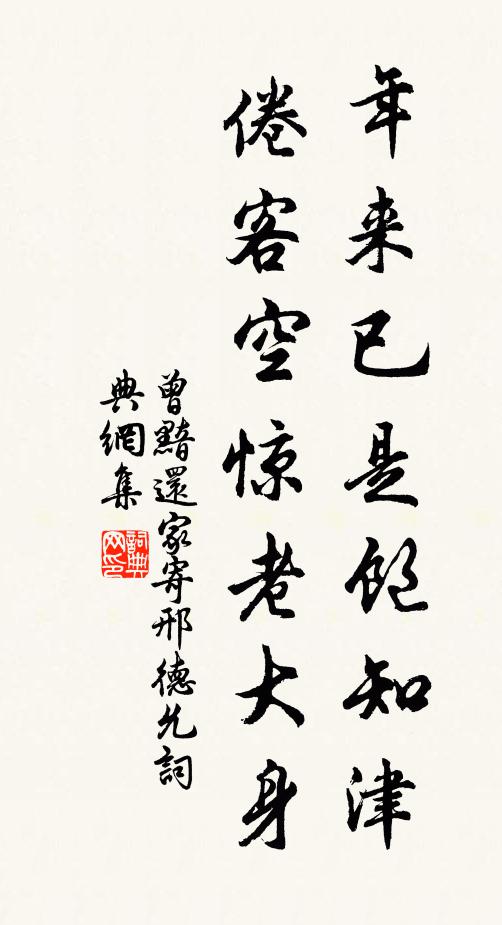 年来已是飽知津
倦客空惊老大身
曾黯還家寄邢德允詞
典網集
詞典网印